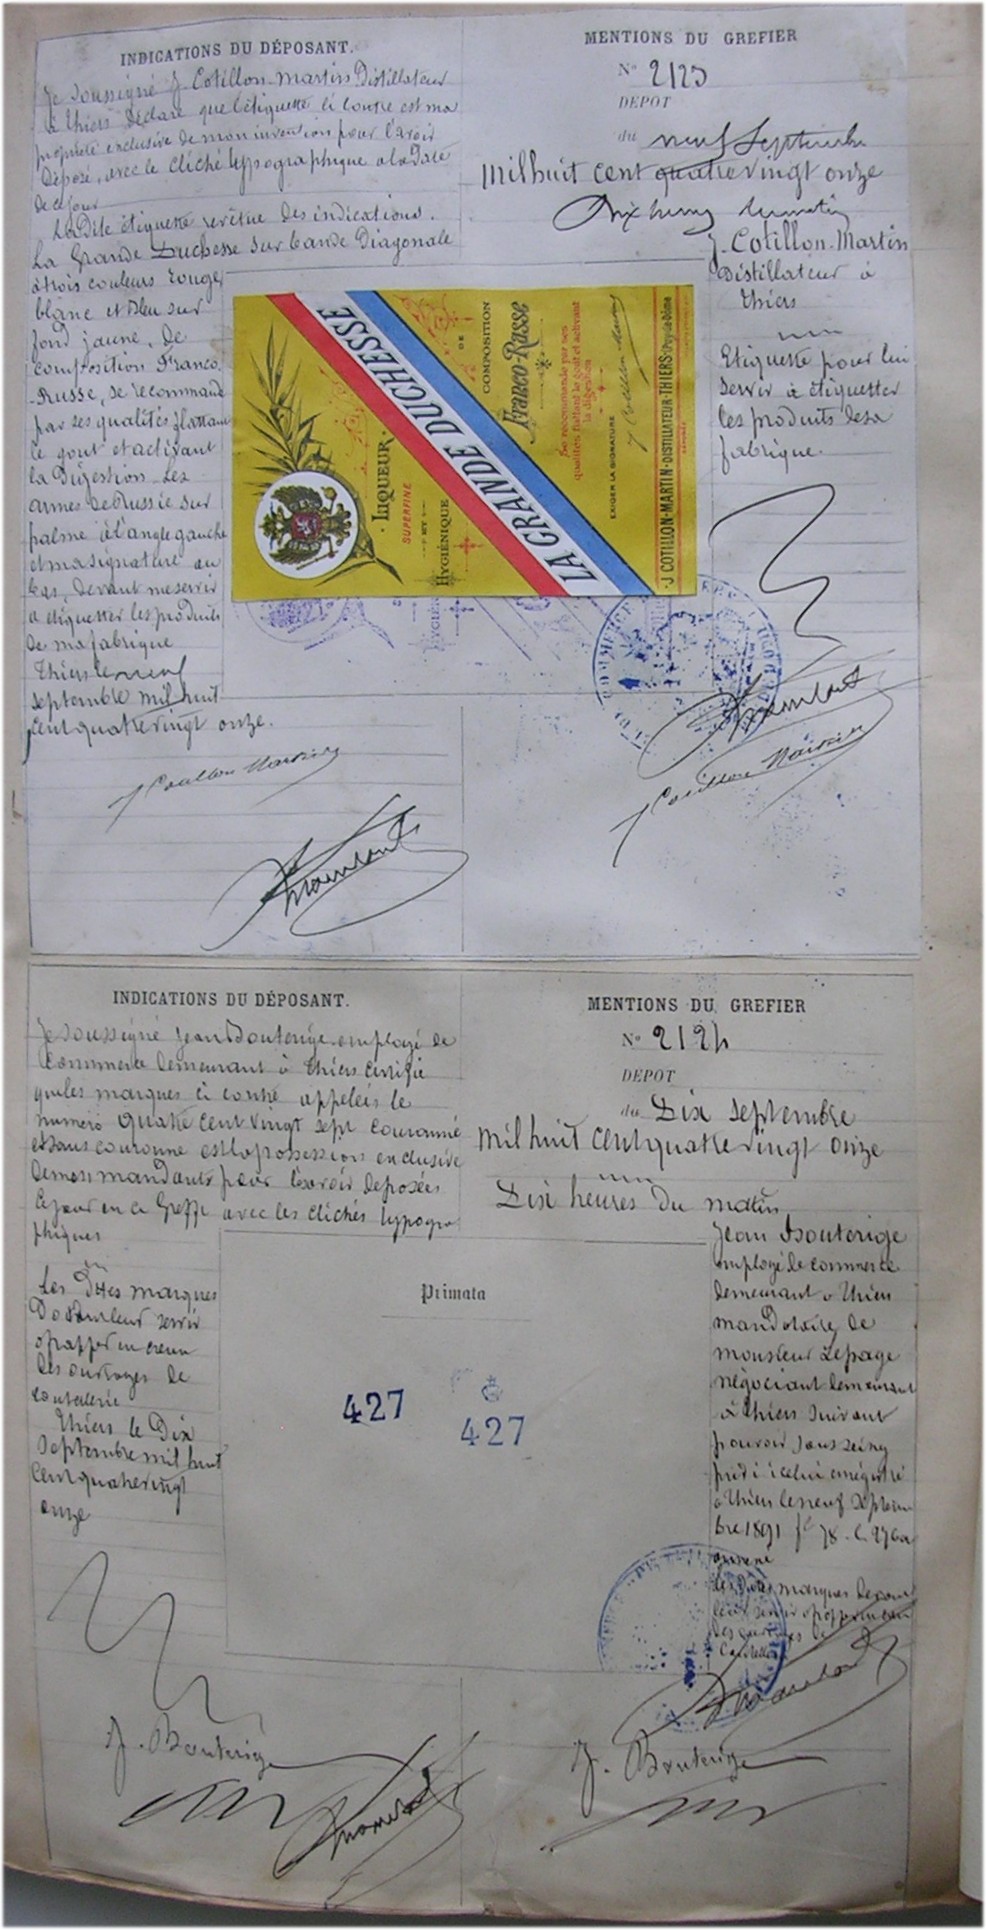 INDICATIONS DU DÉPOSANT.
Je soussigné J Cotillon-Martin Distillateur
à Thiers déclare que l'étiquette ci contre est ma
propriété exclusive de mon invention pour l'avoir
déposé, avec le cliché typographique a la date
de ce jour
La dite étiquette revêtue des indications.
La Grande Duchesse sur bande diagonale
à trois couleurs rouge
blanc et bleu sur
fond jaune, de
composition Franco
-Russe, se recommand
par ses qualités flattant
le gout et activant
la digestion Les
armes de Russie sur
palme à l'angle gauche
et ma signature au
bas, devant me servir
a étiquetter les produits
de ma fabrique
Thiers le neuf
septembre mil huit
cent quatre vingt onze.
J Cotillon Martin
MENTIONS DU GREFIER
N° 2123
DÉPOT
du neuf Septembre
mil huit cent quatre vingt onze
Dix heures du matin
J. Cotillon-Martin
Distillateur à
Thiers
Etiquette pour lui
servir à étiquetter
les produits de sa
fabrique.
J Cotillon Martin
LA GRANDE DUCHESSE
LIQUEUR
SUPERFINE
ET
HYGIÉNIQUE
DE
COMPOSITION
Franco-Russe
Se recommande par ses
qualités flattant le goût et activant
la digestion
EXIGER LA SIGNATURE
J Cotillon Martin
J COTILLON-MARTIN-DISTILLATEUR-THIERS (Puy-de-Dôme
INDICATIONS DU DÉPOSANT.
Je soussigné Jean Bouterige employé de
commerce demeurant à Thiers certifie
que les marques ci contre appelées le
numéro quatre cent vingt sept couronné
et sans couronne est la possession exclusive
de mes mandants pour l'avoir déposées
ce jour en ce Greffe avec les clichés typogra
phiques
Les dites marques
doivent leur servir
a frapper en creux
des ouvrages de
coutellerie
Thiers le Dix
Septembre mil huit
cent quatre vingt
onze
J. Bouterige
MENTIONS DU GREFIER
N° 2124
DÉPOT
du Dix septembre
mil huit cent quatre vingt onze
Dix heures du matin
Jean Bouterige
employé de commerce
demeurant a Thiers
mandataire de
monsieur Lepage
négociant demeurant
à Thiers suivant
pouvoir sous seing
privé icelui enregistré
a Thiers le neuf septem
bre 1891
Les dites marques devant
leur servir a frapper en creux
des ouvrages de
Coutellerie
J. Bouterige
Primata
427
427